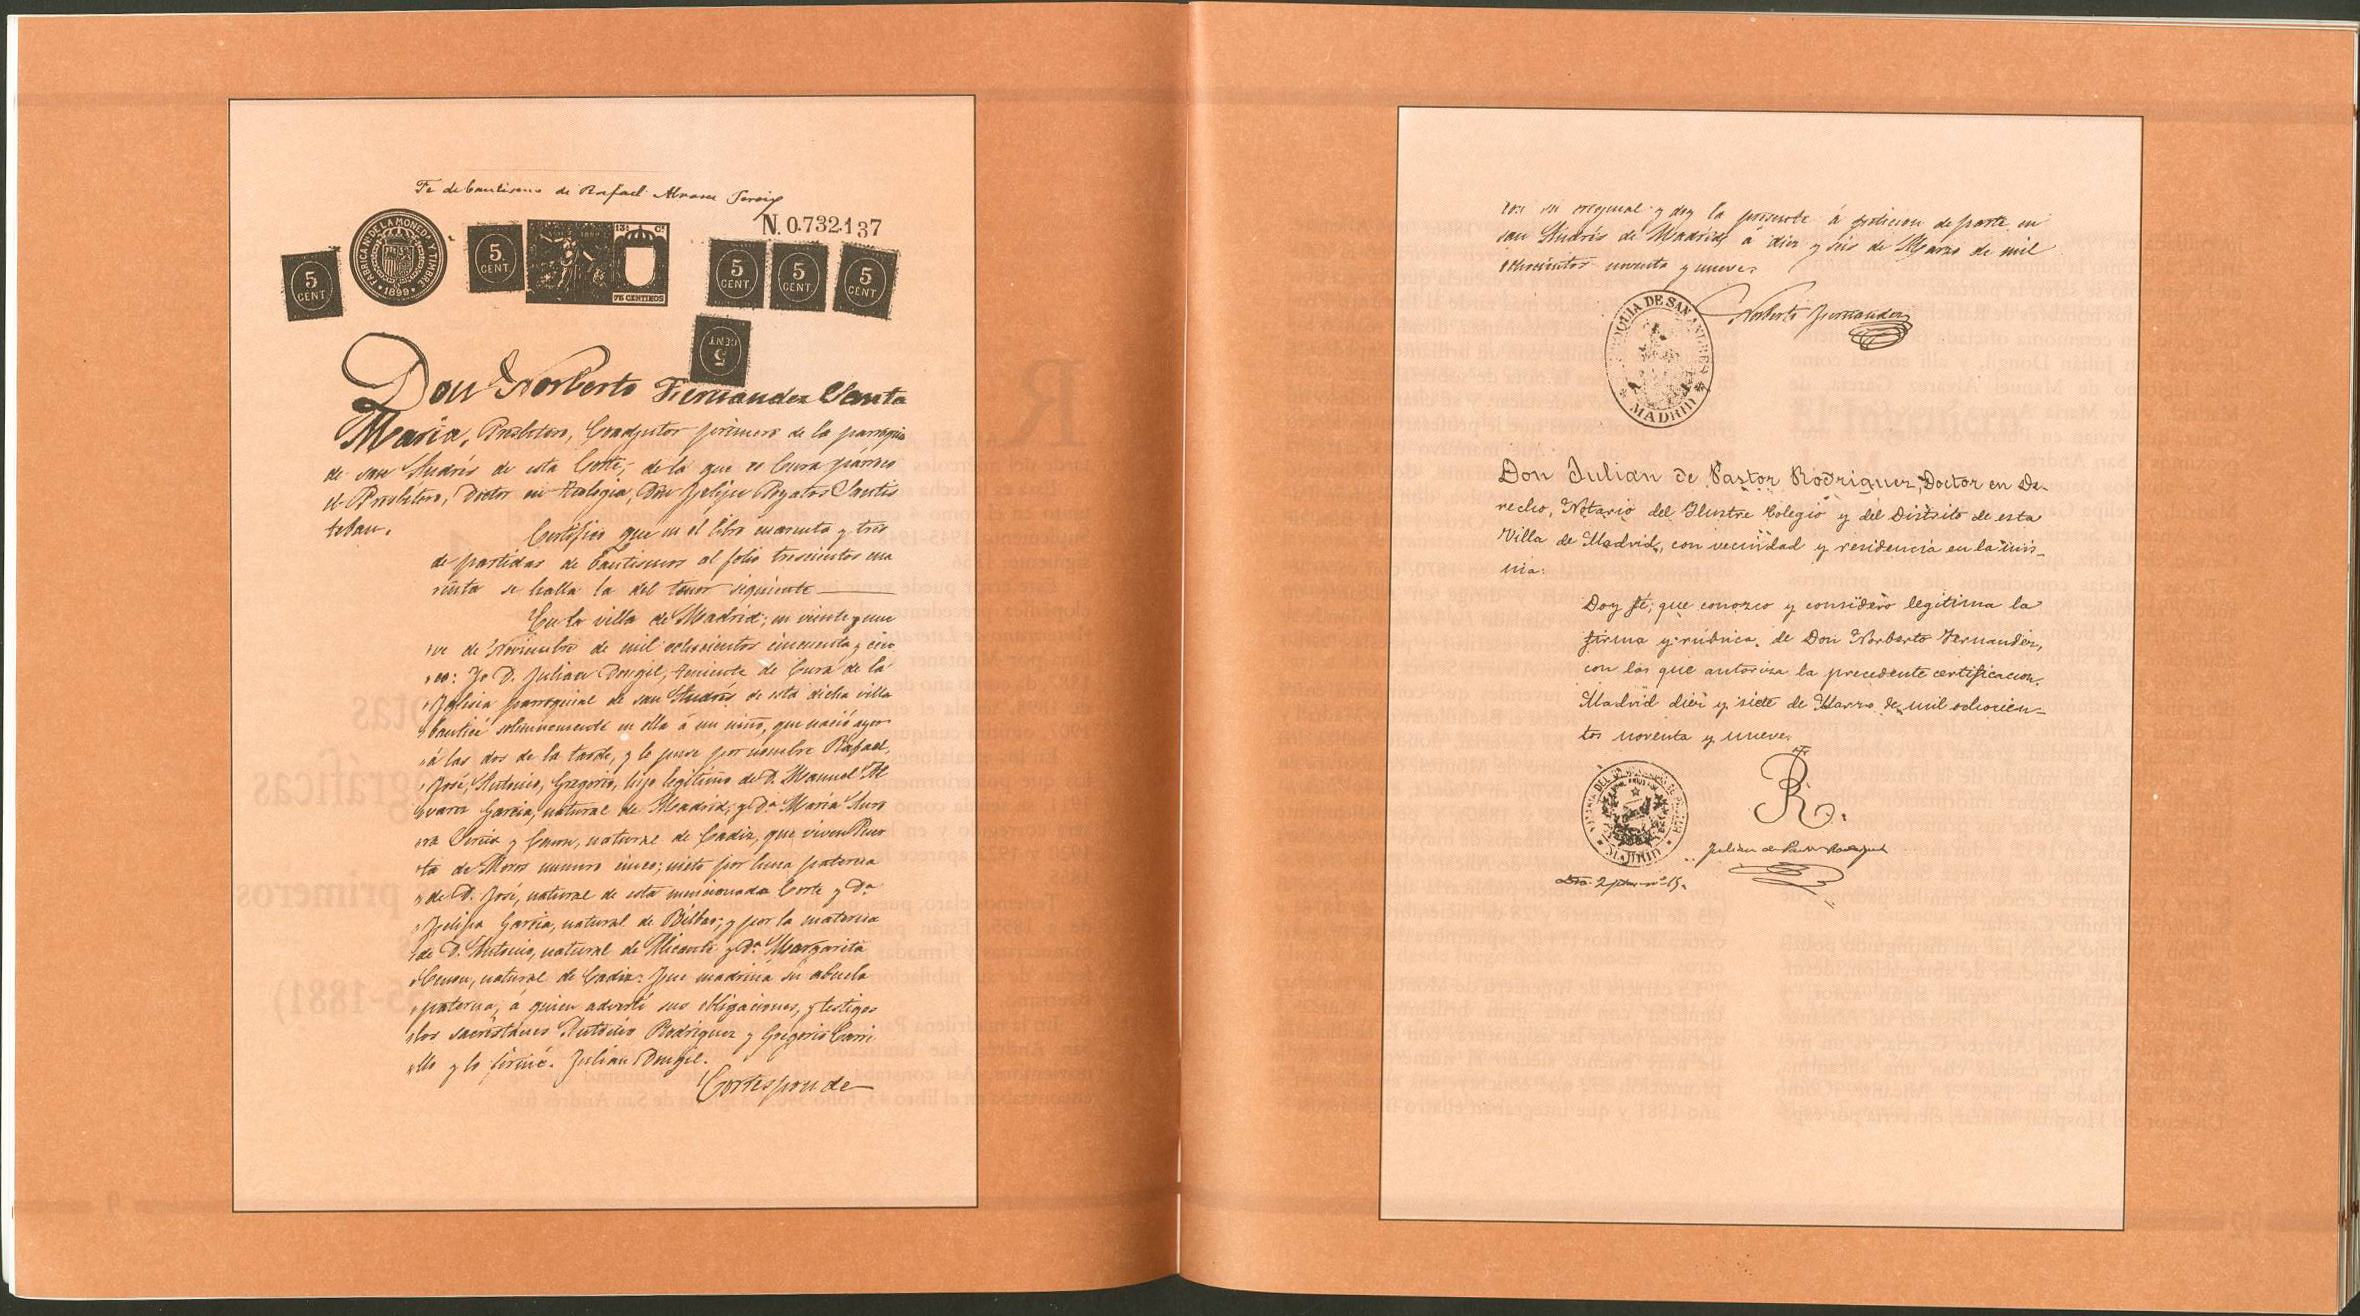 Fe de bautismo de Rafael Alvarez Sereix
N. 0.732.137
FABRICA N. DE LA MONEDA Y TIMBRE
1899
5 CENT.
5 CENT.
13ª Cª
75 CENTIMOS
5 CENT
5 CENT.
5 CENT
5 CENT
Don Norberto Fernandez Santa
Maria, Presbitero, Coadjutor primero de la parroquia
de san Andrés de esta Corte, de la que es Cura párroco
el Presbitero, Doctor en Teologia, Don Felipe
teban.
Certifico que en el libro cuarenta y tres
de partidas de Bautismos al folio trescientos cua
renta se halla la del tenor siguiente
En la villa de Madrid; en veinte y nue
ve de Noviembre de mil ochocientos cincuenta y cin
co: Yo D. Julian Dongil, teniente de Cura de la
Iglesia parroquial de san Andrés de esta dicha villa
bauticé solemnemente en ella á un niño, que nació ayer
á las dos de la tarde, y le puse por nombre Rafael,
José, Antonio, Gregorio, hijo legítimo de D. Manuel Al
varez Garcia, natural de Madrid; y Dª Maria Auro
ra Sereix y Ceron, natural de Cadiz, que viven Puer
ta de Moros numero cinco; nieto por linea paterna
de D. José, natural de esta mencionada Corte y Dª
Felipa Garcia, natural de Bilbao; y por la materna
de D. Antonio, natural de Alicante y Dª Margarita
Ceron, natural de Cadiz: fue madrina su abuela
paterna, á quien advertí sus obligaciones, y testigos
los sacristanes Antonio Rodriguez y Gregorio Carri
llo y lo firmé. Julian Dongil.
Corresponde
con su original y doy la presente á peticion de parte en
san Andrés de Madrid á diez y seis de Marzo de mil
ochocientos noventa y nueve.
Norberto Fernandez
PARROQUIA DE SAN ANDRES
MADRID
Don Julian de Pastor Rodriguez, Doctor en De-
recho, Notario del Ilustre Colegio y del Distrito de esta
Villa de Madrid, con vecindad y residencia en la mis-
ma:
Doy fé; que conozco y considero legítima la
firma y rúbrica, de Don Norberto Fernandez,
con las que autoriza la precedente certificacion.
Madrid diez y siete de Marzo de mil ochocien-
tos noventa y nueve.
MADRID
Julian de Pastor Rodriguez